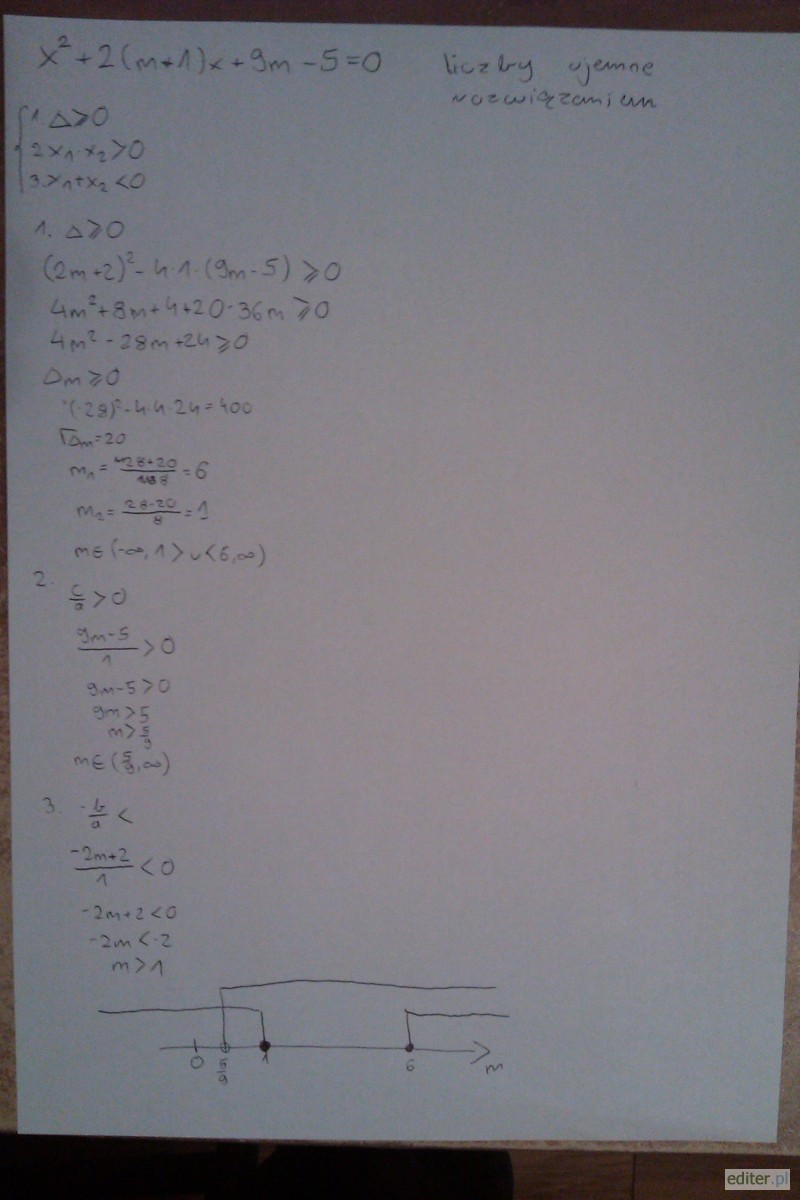 x² + 2(m+1)x + 9m - 5 = 0 liczby ujemne
rozwiązaniem
1. Δ≥0
2 x₁·x₂>0
3. x₁+x₂<0
1. Δ≥0
(2m+2)² - 4·1·(9m-5) ≥0
4m²+8m+4+20-36m ≥0
4m² - 28m+24≥0
Δm ≥0
(-28)²-4·4·24=400
√Δm=20
m₁ = 28+20/8 = 6
m₂ = 28-20/8 = 1
m∈(-∞,1>∪<6,∞)
2.
c/a >0
9m-5/1 >0
9m-5>0
9m>5
m>5/9
m∈(5/9,∞)
3. -b/a <
-2m+2/1 <0
-2m+2<0
-2m<-2
m>1
0 5/9 1 6 m
editer.pl